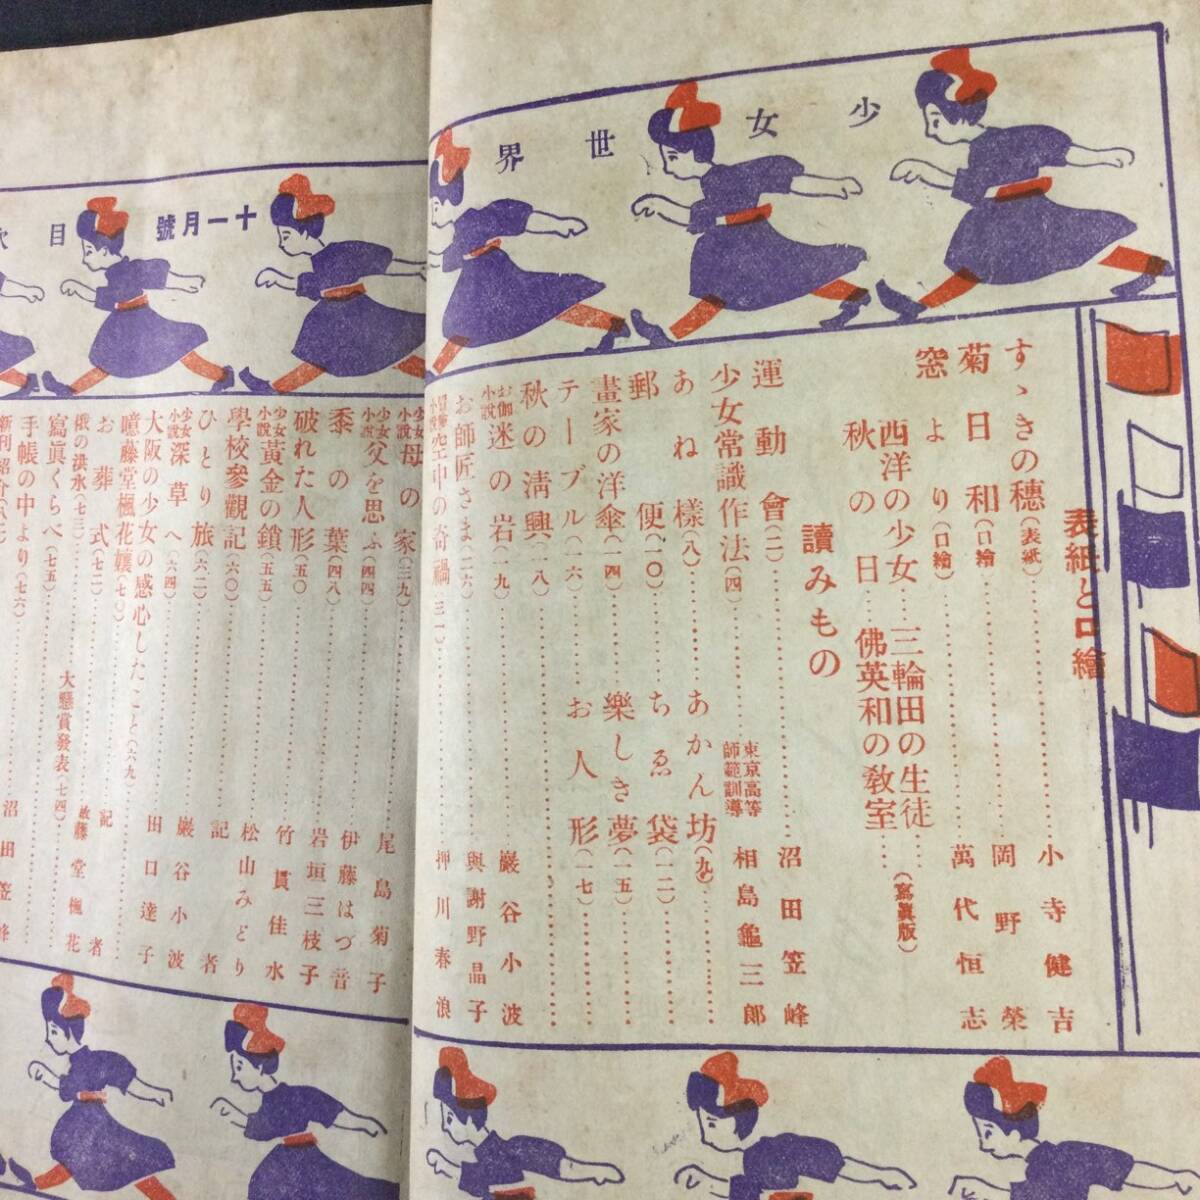 少女世界
十一月號 目次
表紙と口繪
すゝきの穗(表紙)‥‥‥小寺健吉
菊日和(口繪)‥‥‥岡野榮
窓より(口繪)‥‥‥萬代恒志
西洋の少女‥‥三輪田の生徒‥‥(寫眞版)
秋の日‥‥佛英和の教室‥‥
讀みもの
運動會(二)‥‥‥沼田笠峰
少女常識作法(四)‥‥‥東京高等師範訓導 相島龜三郎
あね樣(八)‥‥‥あかん坊(九)‥‥‥
郵便(一〇)‥‥‥ちゑ袋(一二)‥‥‥
畫家の洋傘(一四)‥‥‥樂しき夢(一五)‥‥‥
テーブル(一六)‥‥‥お人形(一七)‥‥‥
秋の淸興(一八)‥‥‥
お伽小說 迷の岩(一九)‥‥‥巖谷小波
お師匠さま(二六)‥‥‥與謝野晶子
空中の奇禍(三一)‥‥‥押川春浪
少女小說 母の家(三九)‥‥‥尾島菊子
少女小說 父を思ふ(四四)‥‥‥伊藤はづ音
黍の葉(四八)‥‥‥岩垣三枝子
破れた人形(五〇)‥‥‥竹貫佳水
少女小說 黃金の鎖(五五)‥‥‥松山みどり
學校參觀記(六〇)‥‥‥記者
ひとり旅(六二)‥‥‥巖谷小波
少女小說 深草へ(六四)‥‥‥田口達子
大阪の少女の感心したこと(六九)‥‥‥
噫藤堂楓花孃(七〇)‥‥‥記者
お葬式(七二)‥‥‥故藤堂楓花
俄の洪水(七三)‥‥‥大懸賞發表(七四)‥‥‥
寫眞くらべ(七五)‥‥‥
手帳の中より(七六)‥‥‥沼田笠峰
新刊紹介